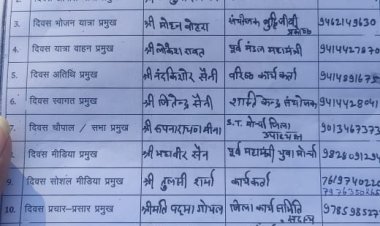 3. दिवस भोजन यात्रा प्रमुख श्री मोहन बोहरा संयोजक बुद्धिजीवी प्रकोष्ठ 9462149630
4. दिवस यात्रा वाहन प्रमुख श्री लोकेश रावत पूर्व मंडल महामंत्री 9414427870
5. दिवस अतिथि प्रमुख श्री नंदकिशोर सैनी वरिष्ठ कार्यकर्ता
6. दिवस स्वागत प्रमुख श्री जितेन्द्र सैनी शक्ति केन्द्र संयोजक 9414428041
7. दिवस चौपाल / सभा प्रमुख श्री रूपनारायण मीना S.T. मोर्चा जिला उपाध्यक्ष 9013467373
8. दिवस मीडिया प्रमुख श्री महावीर सैन पूर्व महामंत्री युवा मोर्चा
9. दिवस सोशल मीडिया प्रमुख श्री तुलसी शर्मा कार्यकर्ता
10. दिवस प्रचार-प्रसार प्रमुख श्रीमति पदमा गोयल जिला कार्य समिति सदस्य